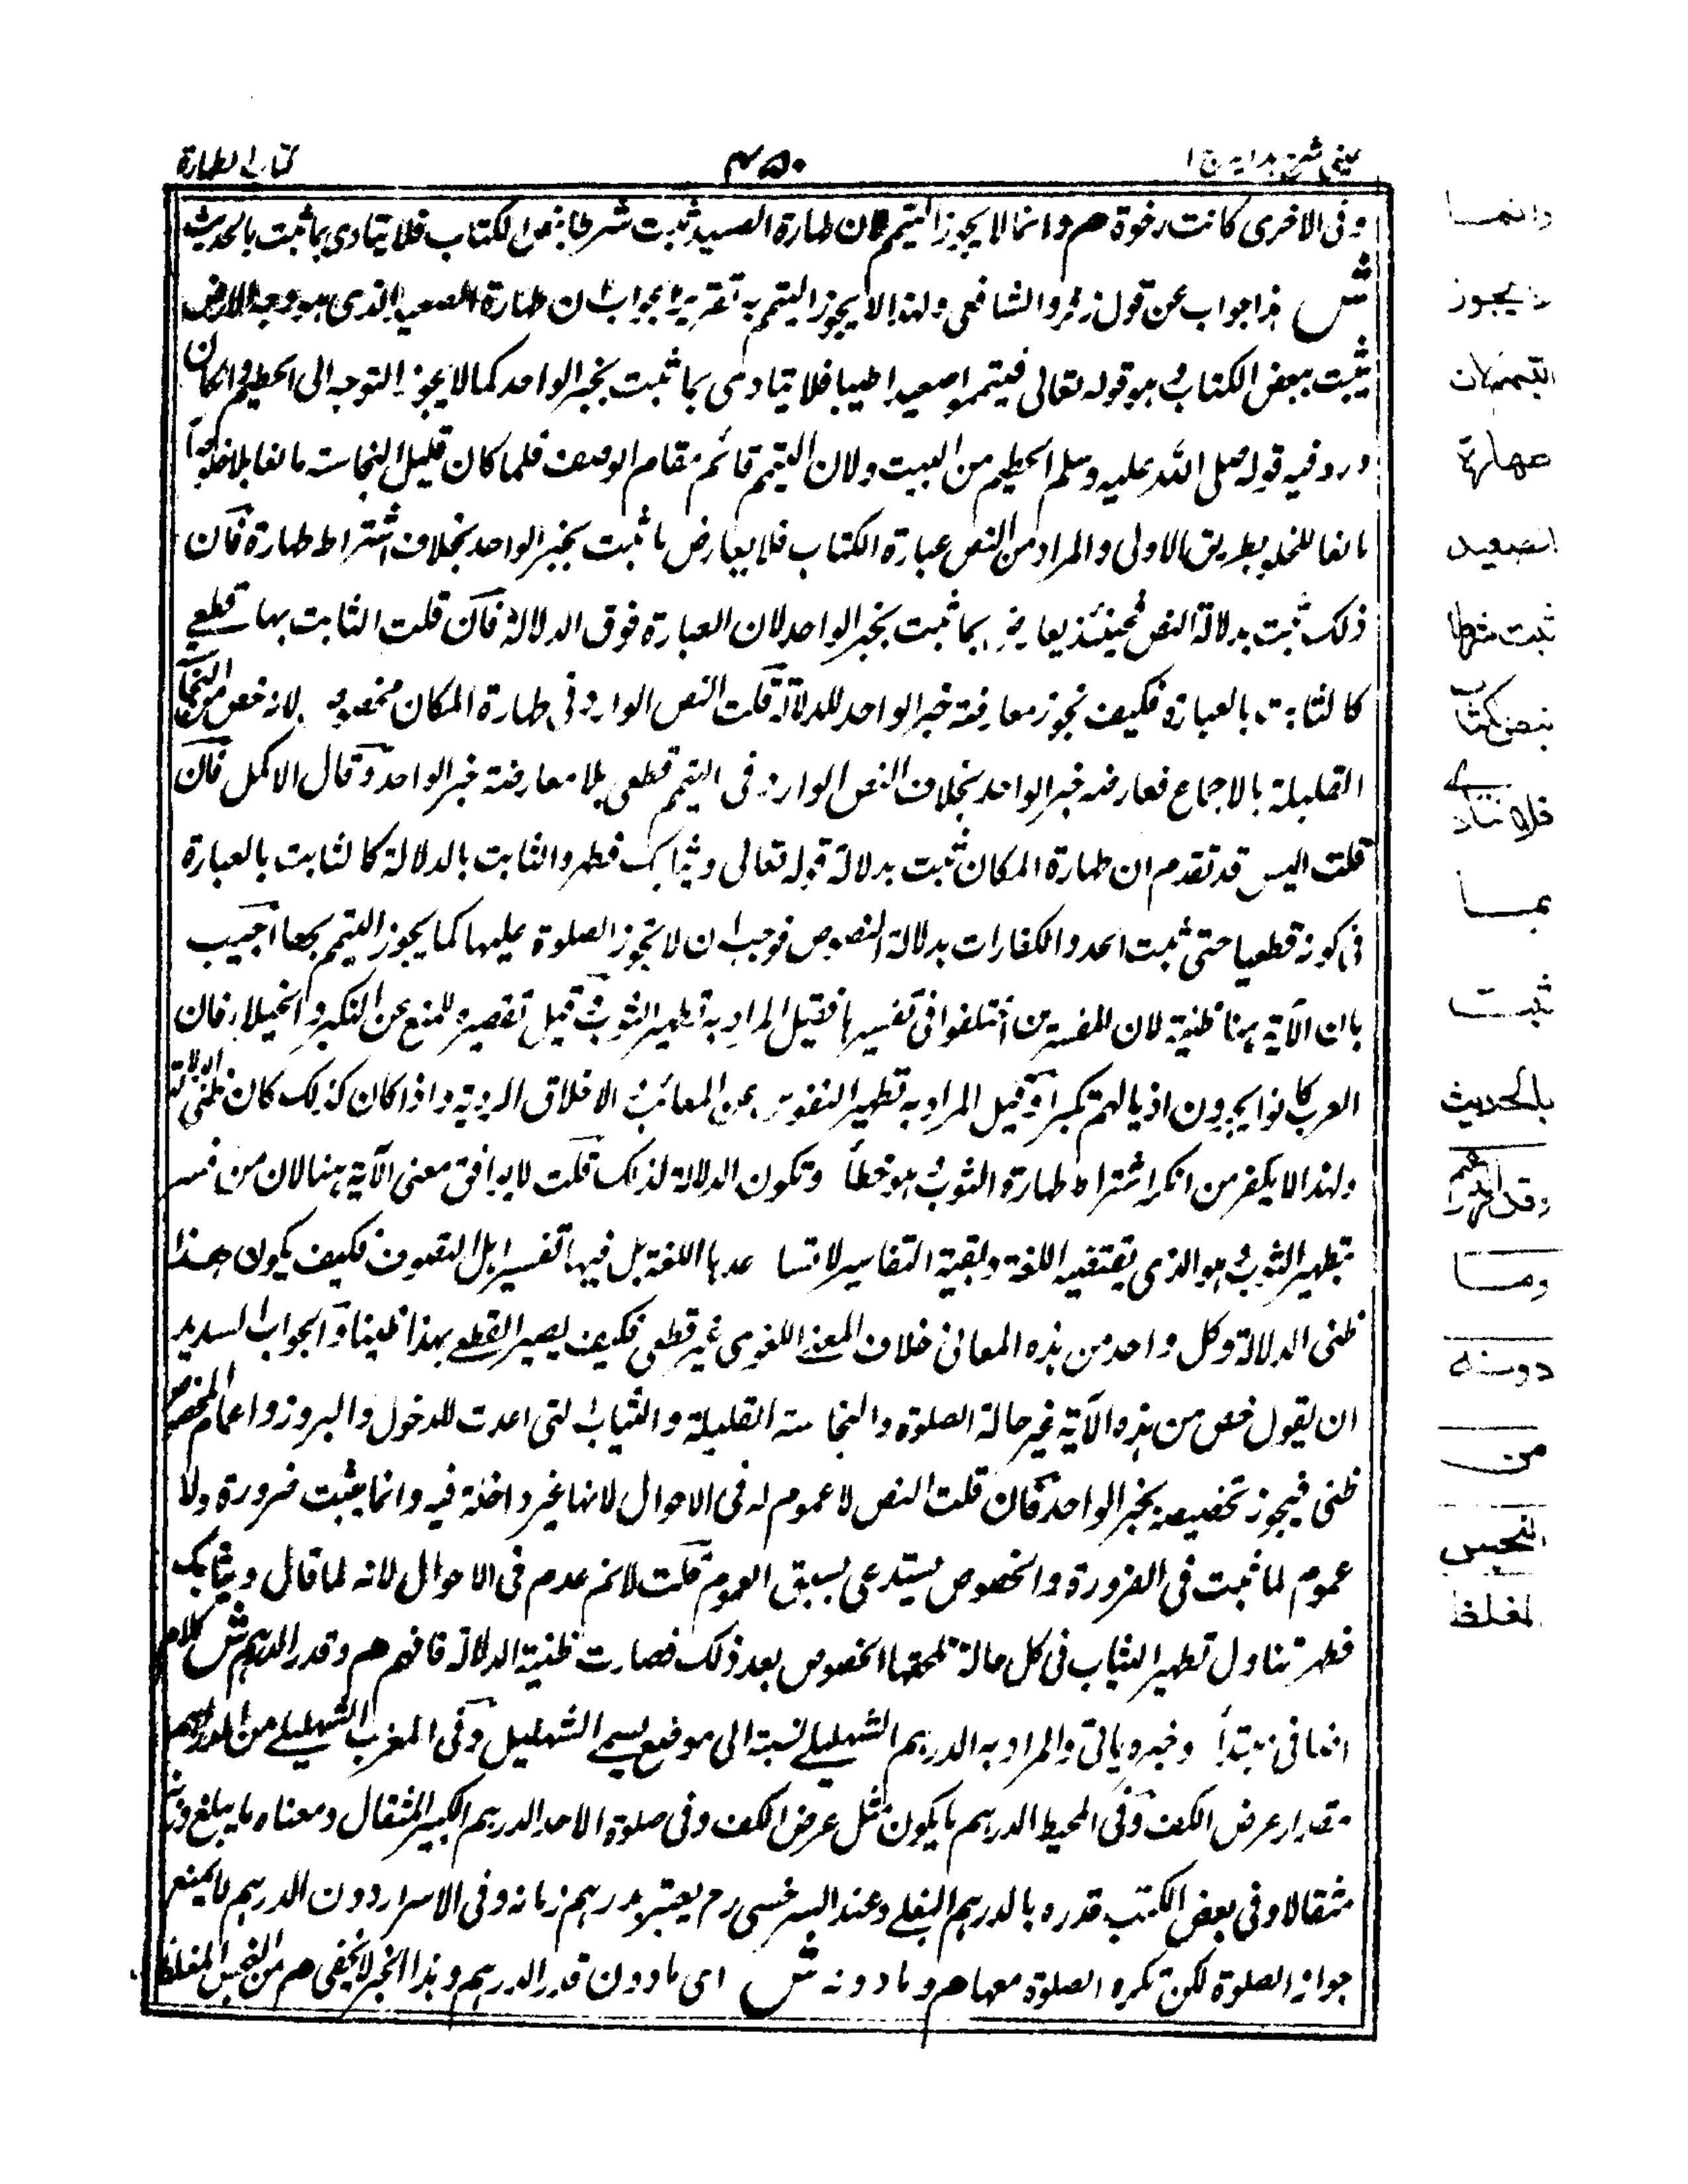 عینی شرح هدایه ج ا
۴۵۰
کتاب الطهارة
وفی الاخری کانت رخوة هم وانما لا یجوز التیمم لان طهارة الصعید ثبت شرطا بنص الکتاب فلا یتادی بما ثبت بالحدیث
ش هذا جواب عن قول زفر والشافعی ولهذا لا یجوز التیمم به تقریر الجواب ان طهارة الصعید الذی هو وجه الارض
یثبت ببعض الکتاب وهو قوله تعالی فتیمموا صعیدا طیبا فلا یتادی بما ثبت بخبر الواحد کما لا یجوز التوجه الی الحطیم وان کان
ورد فیه قوله صلی الله علیه وسلم الحطیم من البیت ولان التیمم قائم مقام الوصف فلما کان قلیل النجاسة مانعا
مانعا للخلو بطریق الاولی والمراد من النص عبارة الکتاب فلا یعارض ما ثبت بخبر الواحد بخلاف اشتراط طهارة فان
ذلک ثبت بدلالة النص فحینئذ یعارض بما ثبت بخبر الواحد لان العبارة فوق الدلالة فان قلت الثابت بها قطعی
کالثابت بالعبارة فکیف تجوز معارضة خبر الواحد للدلالة قلت النص الوارد فی طهارة المکان مخصوص لانه خص من النجاسة
القلیلة بالاجماع فعارضه خبر الواحد بخلاف النص الوارد فی التیمم قطعی بلا معارضة خبر الواحد وقال الاکمل فان
قلت الیس قد تقدم ان طهارة المکان ثبت بدلالة قوله تعالی وثیابک فطهر والثابت بالدلالة کالثابت بالعبارة
فی کونه قطعیا حتی ثبت الحدود والکفارات بدلالة النصوص فوجب ان لا تجوز الصلوة علیها کما یجوز التیمم بها اجیب
بان الآیة هنا ظنیة لان المفسرین اختلفوا فی تفسیرها فقیل المراد به تطهیر الثوب وقیل تقصیره للمنع عن التکبر والخیلاء فان
العرب کانوا یجرون اذیالهم تکبرا وقیل المراد به تطهیر النفوس عن المعائب والاخلاق الردیة واذا کان کذلک کان ظنی الدلالة
ولهذا لا یکفر من انکر اشتراط طهارة الثوب وهو خطأ وتکون الدلالة لذلک قلت لا یوافق معنی الآیة هنا لان من فسر
بتطهیر الثوب هو الذی یقتضیه اللغة وبقیة التفاسیر لا تساعدها اللغة بل فیها تفسیر اهل التصوف فکیف یکون هذا
ظنی الدلالة وکل واحد من هذه المعانی خلاف المعنی اللغوی غیر قطعی فکیف یصیر القطعی بهذا ظنیا والجواب السدید
ان یقول خص من هذه الآیة غیر حالة الصلوة والنجاسة القلیلة والثیاب التی اعدت للدخول والبروز والعام المخصوص
ظنی فیجوز تخصیصه بخبر الواحد فان قلت النص لا عموم له فی الاحوال لانها غیر داخلة فیه وانما یثبت ضرورة ولا
عموم لما ثبت فی الضرورة والخصوص یستدعی بسبق العموم قلت لا نم عدم فی الاحوال لانه لما قال وثیابک
فطهر تناول تطهیر الثیاب فی کل حالة تلحقها الخصوص بعد ذلک فصارت ظنیة الدلالة فافهم هم وقدر الدرهم ش کلام
اضافی مبتدأ وخبره یاتی والمراد به الدرهم الشهلیلے نسبة الی موضع یسمے الشهلیل وفی المغرب الشهلیلے من الدراهم
مقدار عرض الکف وفی المحیط الدرهم ما یکون مثل عرض الکف وفی صلوة الاصل الدرهم الکبیر المثقال ومعناه ما یبلغ وزنه
مثقالا وفی بعض الکتب قدره بالدرهم البغلے وعند السرخسی رح یعتبر بدرهم زمانه وفی الاسرار دون الدرهم لا یمنع
جواز الصلوة لکن تکره الصلوة معها هم وما دونه ش ای ما دون قدر الدرهم وهذا الخبر لا یخفی هم من النجس المغلظ
وانمــا
لا یجوز
التیمم لان
طهارة
الصعید
ثبت شرطا
بنص الکتاب
فلا یتادے
بمــا
ثبت
بالحدیث
وقدر الدرهم
ومــا
دونه
من
النجس
المغلظ